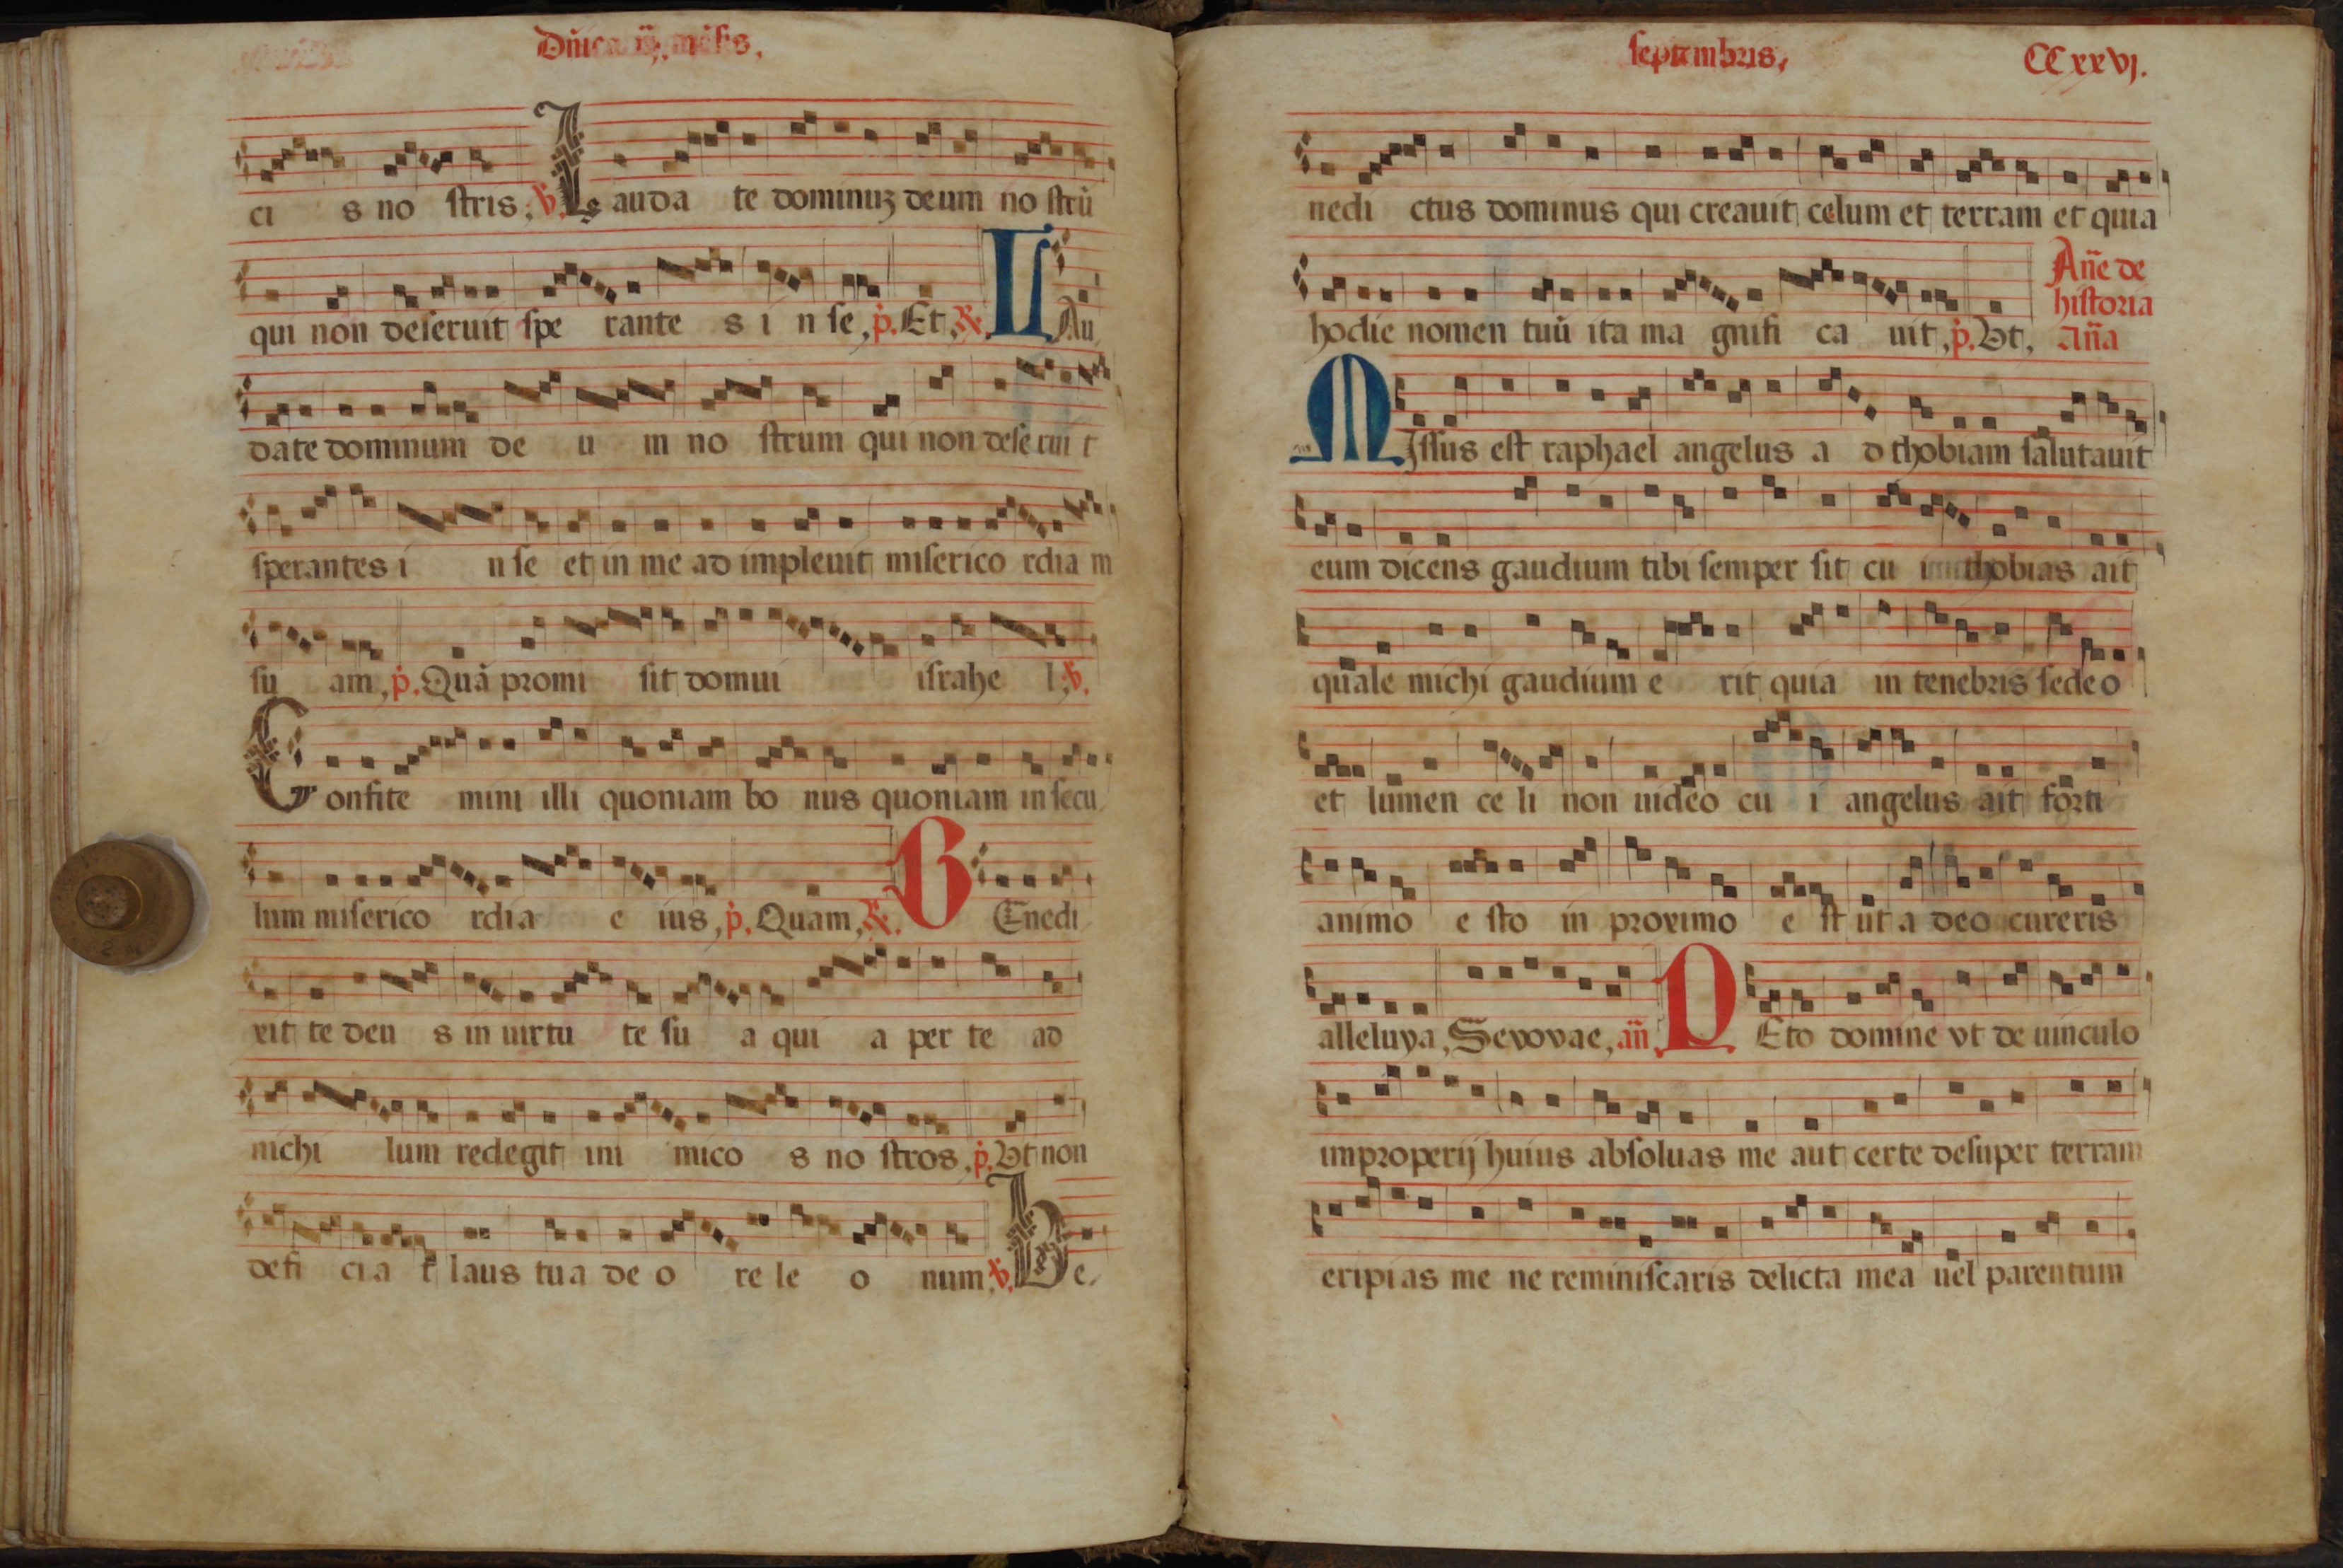 Dñica mẽsis.
ci s no stris, ℣. Lauda te dominuz deum no strũ
qui non deseruit spe rante s i n se, p̃. Et, ℟. LAu
date dominum de u m no strum qui non deserui t
sperantes i n se et in me ad impleuit miserico rdia m
su am, p̃. Quã promi sit domui israhe l, ℣.
Confite mini illi quoniam bo nus quoniam in secu
lum miserico rdia e ius, p̃. Quam, ℟. BEnedi
xit te deu s in uirtu te su a qui a per te ad
nichi lum redegit ini mico s no stros, p̃. Vt non
defi cia t laus tua de o re le o num, ℣. Be
septembris, CCxxvj.
nedi ctus dominus qui creauit celum et terram et quia
hodie nomen tuũ ita ma gnifi ca uit, p̃. Vt, Añe de
historia
Aña
MIssus est raphael angelus a d thobiam salutauit
eum dicens gaudium tibi semper sit cu i thobias ait
quale michi gaudium e rit quia in tenebris sedeo
et lumen ce li non uideo cu i angelus ait forti
animo e sto in proximo e st ut a deo cureris
alleluya, Sevovae, añ. PEto domine vt de uinculo
improperij huius absoluas me aut certe desuper terram
eripias me ne reminiscaris delicta mea uel parentum